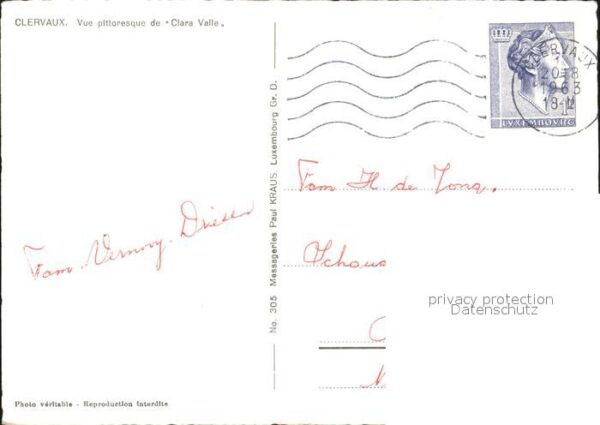 CLERVAUX. Vue pittoresque de "Clara Valle".
CLERVAUX
20-8
1963
18-
LUXEMBOURG
No. 305 Messageries Paul KRAUS, Luxembourg Gr. D.
Fam H de Jong.
Fam. Driess
Schous
privacy protection
Datenschutz
Photo véritable - Reproduction interdite